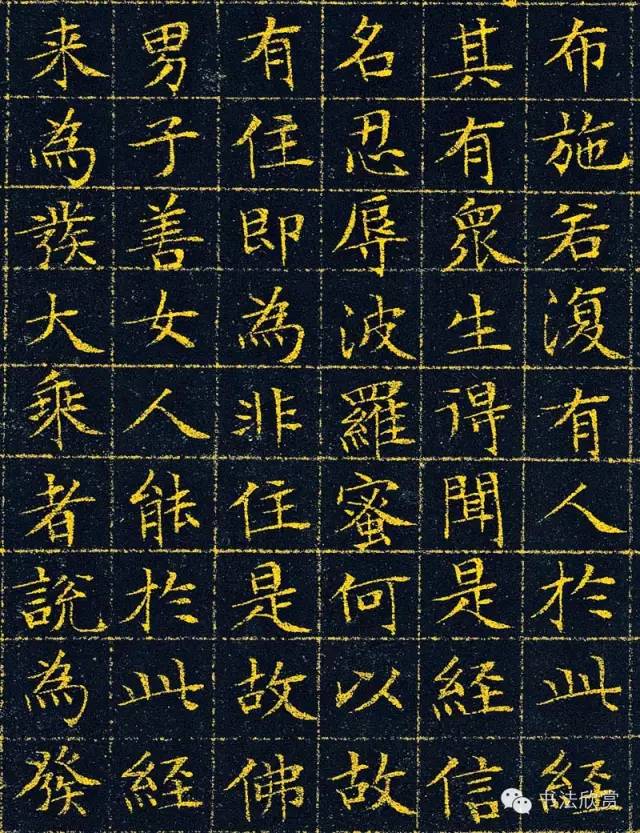 布施若復有人於此經
其有眾生得聞是經信
名忍辱波羅蜜何以故
有住即為非住是故佛
男子善女人能於此經
来為發大乘者說為發
书法欣赏